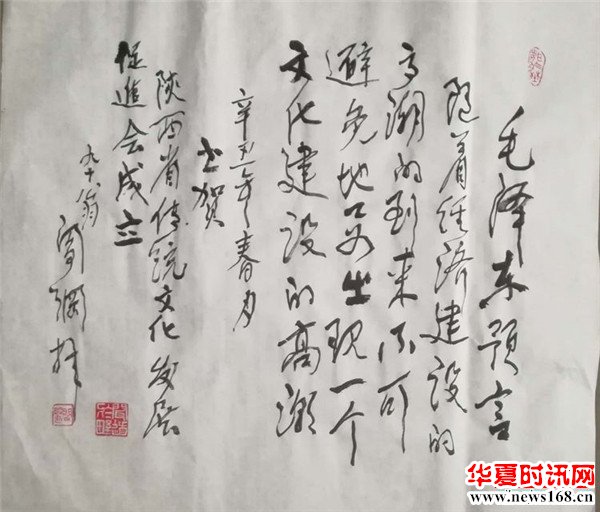 毛泽东预言
随着经济建设的
高潮的到来不可
避免地要出现一个
文化建设的高潮
辛丑年春月
书贺
陕西省传统文化发展
促進会成立
翁
华夏时讯网
www.news168.com.cn